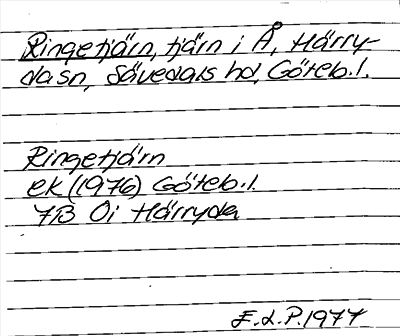 Ringetjärn, tjärn i Å, Härry-
da sn, Sävedals hd, Göteb. l.
Ringetjärn
ek (1976) Göteb. l.
7B 0i Härryda
E.L.P. 1977